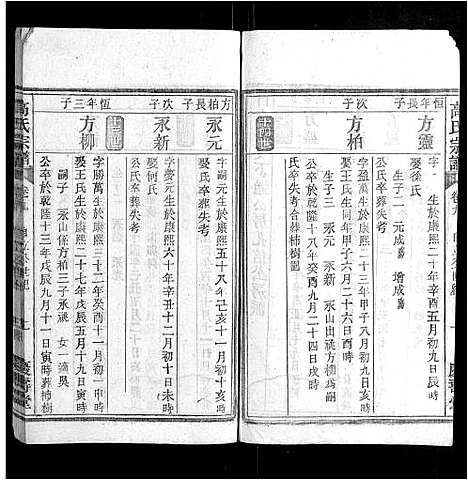 恆年次子
方靈
娶徐氏
生子二 元成嗣 增成嗣
公氏卒葬失考
次子
方柏
字盈萬生於康熙二十三年甲子八月初三日亥時
娶王氏生同年甲子六月二十六日寅時
生子三 永元 永新 永山出祧方柳爲嗣
公卒於乾隆十八年癸酉九月二十四日戌時
氏卒失考合葬柿樹園
十四世
方柏長子
永元
字嗣元生於康熙五十八年己亥十一月初十亥時
娶氏卒葬失考
次子
永新
字薈元生於康熙六十年辛丑十二月初十日未時
娶何氏
公氏卒葬失考
十三世
恆年三子
方柳
字勝萬生於康熙三十二年癸酉十一月初一日寅時
娶王氏生於康熙三十五年丙子八月十九日寅時
嗣子 永山係方柏三子承祧 女一適吳
公卒於乾隆十三年戊辰九月十一日寅時葬柿樹
高氏宗譜